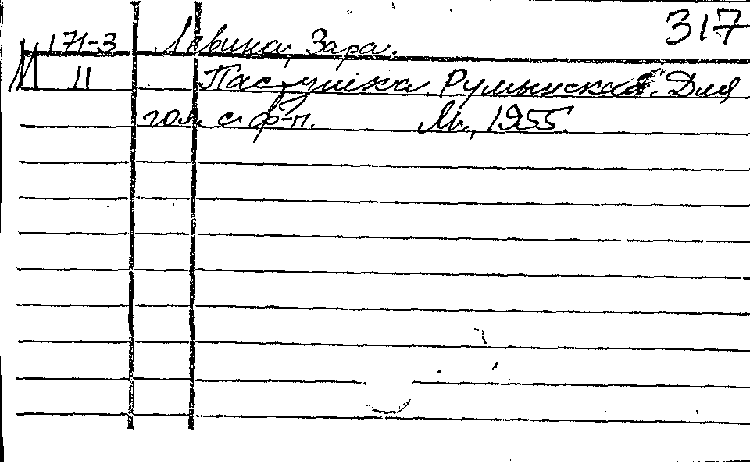 317
171-3 Левина, Зара.
М 11 Пастушка Румынская. Для
гол. с ф-п. М., 1955.